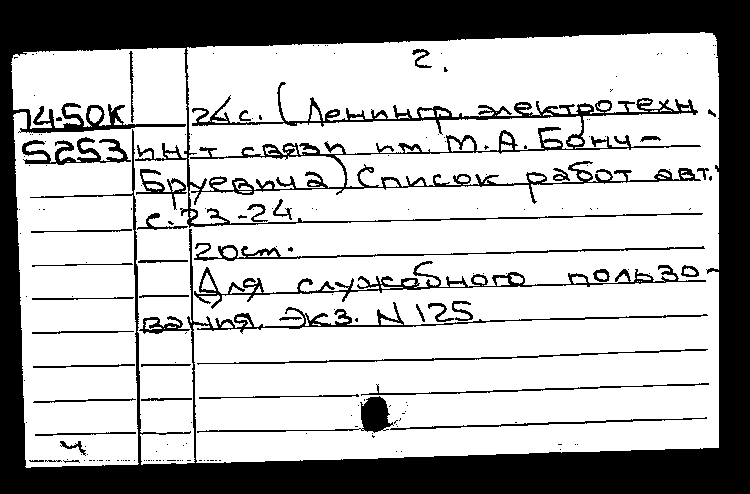 2.
74-50К 24с. (Ленингр. электротехн.
5253 ин-т связи им. М.А. Бонч-
Бруевича) Список работ авт.:
с. 23-24.
20см.
Для служебного пользо-
вания. Экз. N 125.
ч